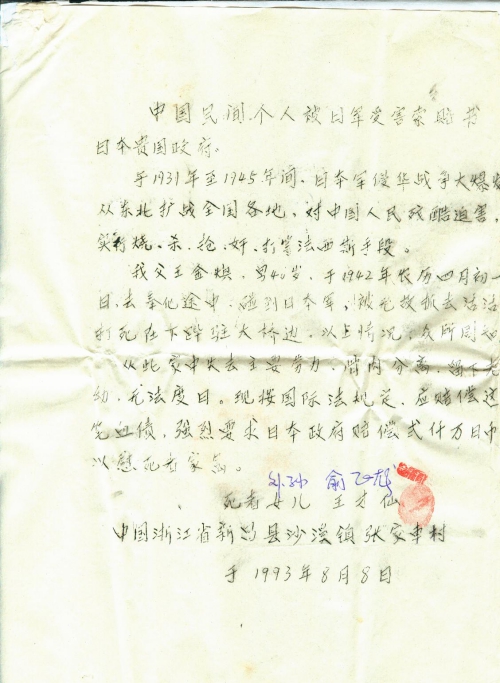 中国民间个人被日军受害索赔书
日本贵国政府。
于1931年至1945年间、日本军侵华战争大爆发
从东北扩战全国各地、对中国人民残酷迫害,
实行烧、杀、抢、奸、打等法西斯手段。
我父王金 男40岁、于1942年农历四月初一
日、去奉化途中、碰到日本军、被无故抓去活活
打死在下跸驻大桥边、以上情况、众所周知
从此家中失去主要劳力、骨肉分离、留下老
幼、无法度日。现按国际法规定、应赔偿这
笔血债,强烈要求日本政府赔偿式什万日
以慰死者家属。
外孙 俞
死者女儿 王才仙
中国浙江省新昌县沙溪镇张家车村
于1993年8月8日